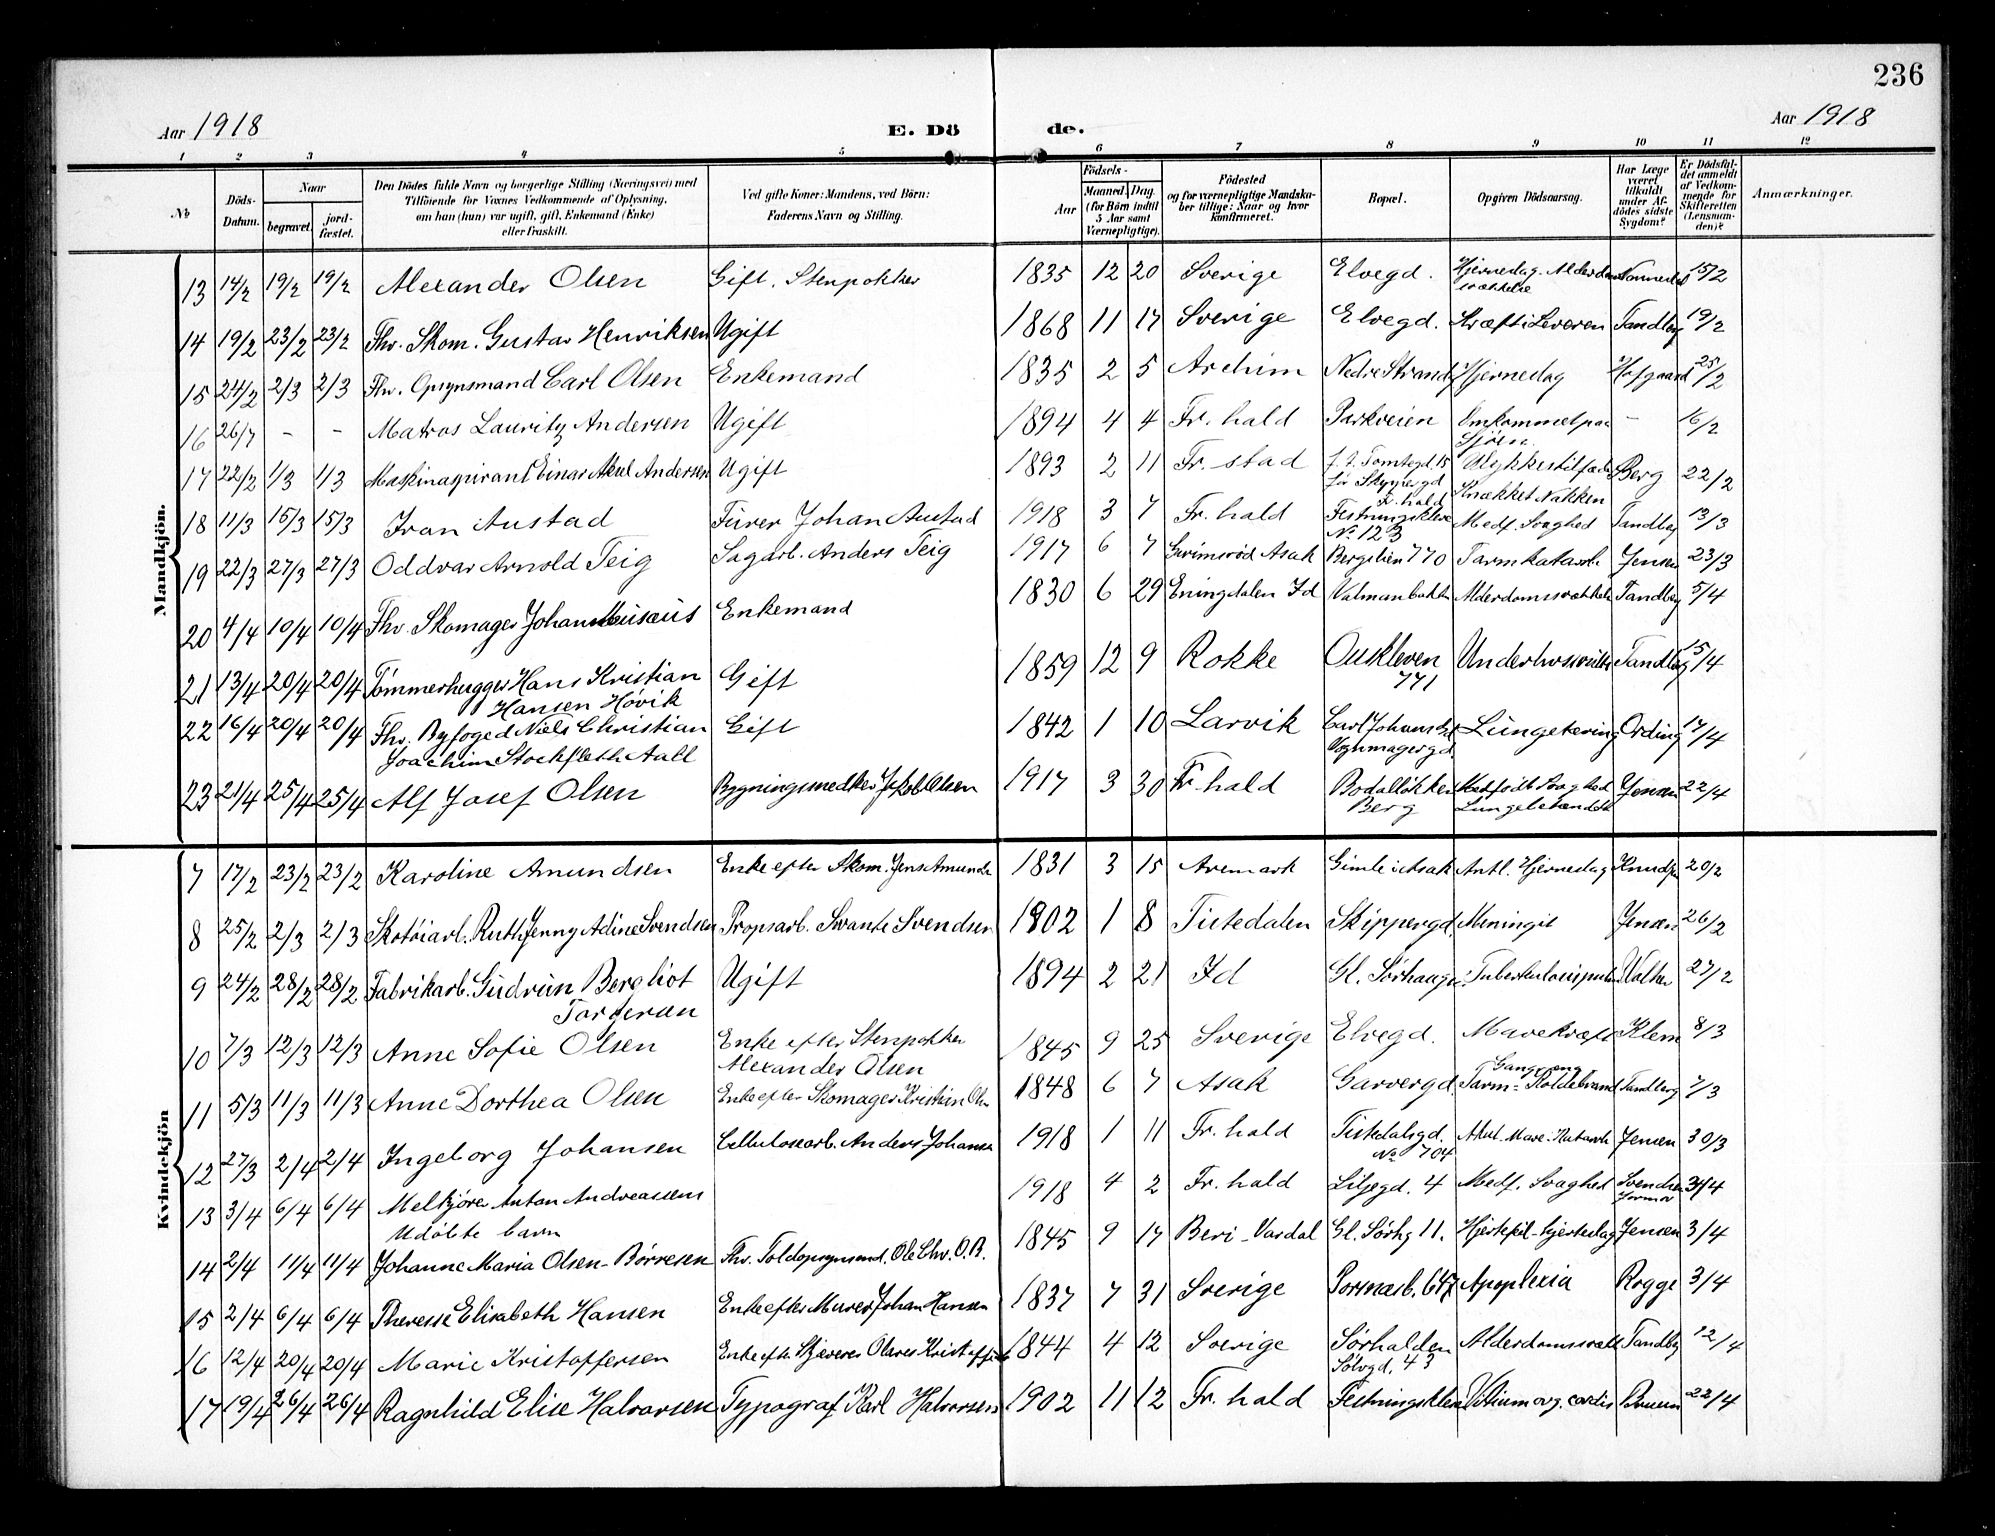 236
Aar 1918
E. Dö
de.
Aar 1918
1 2 3 4 5 6 7 8 9 10 11 12
No
Döds-Datum.
Naar
begravet.
jord-fæstet.
Den Dödes fulde Navn og borgerlige Stilling (Næringsvei) med
Tilföiende for Voxnes Vedkommende af Oplysning,
om han (hun) var ugift, gift, Enkemand (Enke)
eller fraskilt.
Ved gifte Koner: Mandens, ved Börn:
Faderens Navn og Stilling.
Födsels-
Aar
Maaned. Dag.
(for Börn indtil
5 Aar samt
Værnepligtige).
Födested
og for værnepligtige Mandska-
ber tillige: Naar og hvor
konfirmeret.
Bopæl.
Opgiven Dödsaarsag.
Har Læge
været
tilkaldt
under Af-
dödes sidste
Sygdom?
Er Dödsfal-
det anmeldt
af Vedkom-
mende for
Skifteretten
(Lensman-
den)?
Anmærkninger.
Mandkjön.
13 14/2 19/2 19/2 Alexander Olsen Gift. Stenhokker 1835 12 20 Sverige Elvegd. Hjerneslag. 15/2
14 19/2 23/2 23/2 Fhv. Skom. Gustav Henriksen Ugift 1868 11 17 Sverige Elvegd. Kræft i Leveren Tandberg 19/2
15 24/2 2/3 2/3 Fhv. Opsynsmand Carl Olsen Enkemand 1835 2 5 Nedre Strandg Hjerneslag Hofgaard 25/2
16 26/7 – – Matros Lauritz Andersen Ugift 1894 4 4 Fr. hald Parkveien Omkommet paa Sjøen – 16/2
17 22/2 1/3 1/3 Maskinaspirant Einar Axel Andersen Ugift 1893 2 11 Fr. stad f. t. Tomtegd. 15 før Skippergd Fr. hald Ulykkestilfælde Knækket Nakken Berg 22/2
18 11/3 15/3 15/3 Ivan Austad Fürer Johan Austad 1918 3 7 Fr. hald Festningskleve No 123 Medf. Svaghed Tandberg 13/3
19 22/3 27/3 27/3 Oddvar Arnold Teig Sagarb. Anders Teig 1917 6 7 Grimsrød Asak Bergslien 770 Tarmkatarrh Jensen 23/3
20 4/4 10/4 10/4 Fhv. Skomager Johan Musæus Enkemand 1830 6 29 Eningdalen Id Valmanbakken Alderdomssvækkelse Tandberg 5/4
21 13/4 20/4 20/4 Tømmerhugger Hans Kristian Hansen Høvik Gift 1859 12 9 Rokke Oukleven 771 Tandberg 15/4
22 16/4 20/4 20/4 Fhv. Byfoged Niels Christian Joachim Stockfleth Aall Gift 1842 1 10 Larvik Carl Johansgd Vognmagergd. Lungetæring Ording 17/4
23 21/4 25/4 25/4 Alf Josef Olsen Bygningssnedker Jakob Olsen 1917 3 30 Fr. hald Bødalløkken Berg Medfødt Svaghed Lungebetændelse Jensen 22/4
Kvindekjön
7 17/2 23/2 23/2 Karoline Amundsen Enke efter Skom. Jens Amunds 1831 3 15 Aremark Gimle i Asak Antl. Hjerneslag Knudsen 20/2
8 25/2 2/3 2/3 Skotøiarb. Ruth Jenny Adine Svendsen Propsarb. Svante Svendsen 1902 1 8 Tistedalen Skippergd. Meningit Jensen 26/2
9 24/2 28/2 28/2 Fabrikarb. Gudrun Bergliot Torgersen Ugift 1894 2 21 Id Gl. Sørhaugn. Tuberkulosis pulm 27/2
10 7/3 12/3 12/3 Anne Sofie Olsen Enke efter Stenhokker Alexander Olsen 1845 9 25 Sverige Elvegd. Mavekræft Klem 8/3
11 5/3 11/3 11/3 Anne Dorthea Olsen Enke efter Skomager Kristian Ols 1848 6 7 Asak Garvergd. Gangræna Tarm-Koldebrand Tandberg 7/3
12 27/3 2/4 2/4 Ingeborg Johansen Cellulosearb. Anders Johansen 1918 1 11 Fr. hald Tistedalsgd. No 704 Akut Mave-Katarrh Jensen 30/3
13 3/4 6/4 6/4 Melkjører Anton Andreassens Udøbte barn 1918 4 2 Fr. hald Liljegd. 4 Medf. Svaghed Svendsen Jormor 3/4
14 2/4 11/4 11/4 Johanne Maria Olsen-Børresen Fhv. Toldopsynsmd. Ole Chr. O.B. 1845 9 17 Beri-Vardal Gl. Sørhg 11. Hjertefeil-hjerteslag Jensen 3/4
15 2/4 6/4 6/4 Therese Elisabeth Hansen Enke efter Murer Johan Hansen 1837 7 31 Sverige Porsnæsb. 647 Apoplexia Rogge 3/4
16 12/4 20/4 20/4 Marie Kristoffersen Enke efter Skjæverer Olaves Kristoffers 1844 4 12 Sverige Sørhalden Sølvgd. 43 Alderdomssvækk Tandberg 12/4
17 19/4 26/4 26/4 Ragnhild Elise Halvorsen Typograf Karl Halvorsen 1902 11 12 Fr. hald Festningskleve Vitium org. cordis 22/4